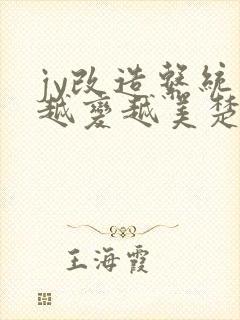 jy改造系統
越變越美楚
王海霞